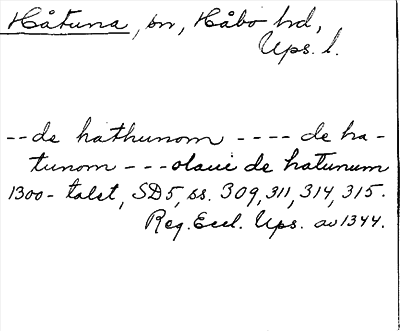 Håtuna, sn, Håbo hd,
Ups. l.
-- de hathunom ---- de ha-
tunom --- olaui de hatunum
1300-talet, SD5, ss. 309, 311, 314, 315.
Reg. Eccl. Ups. av 1344.